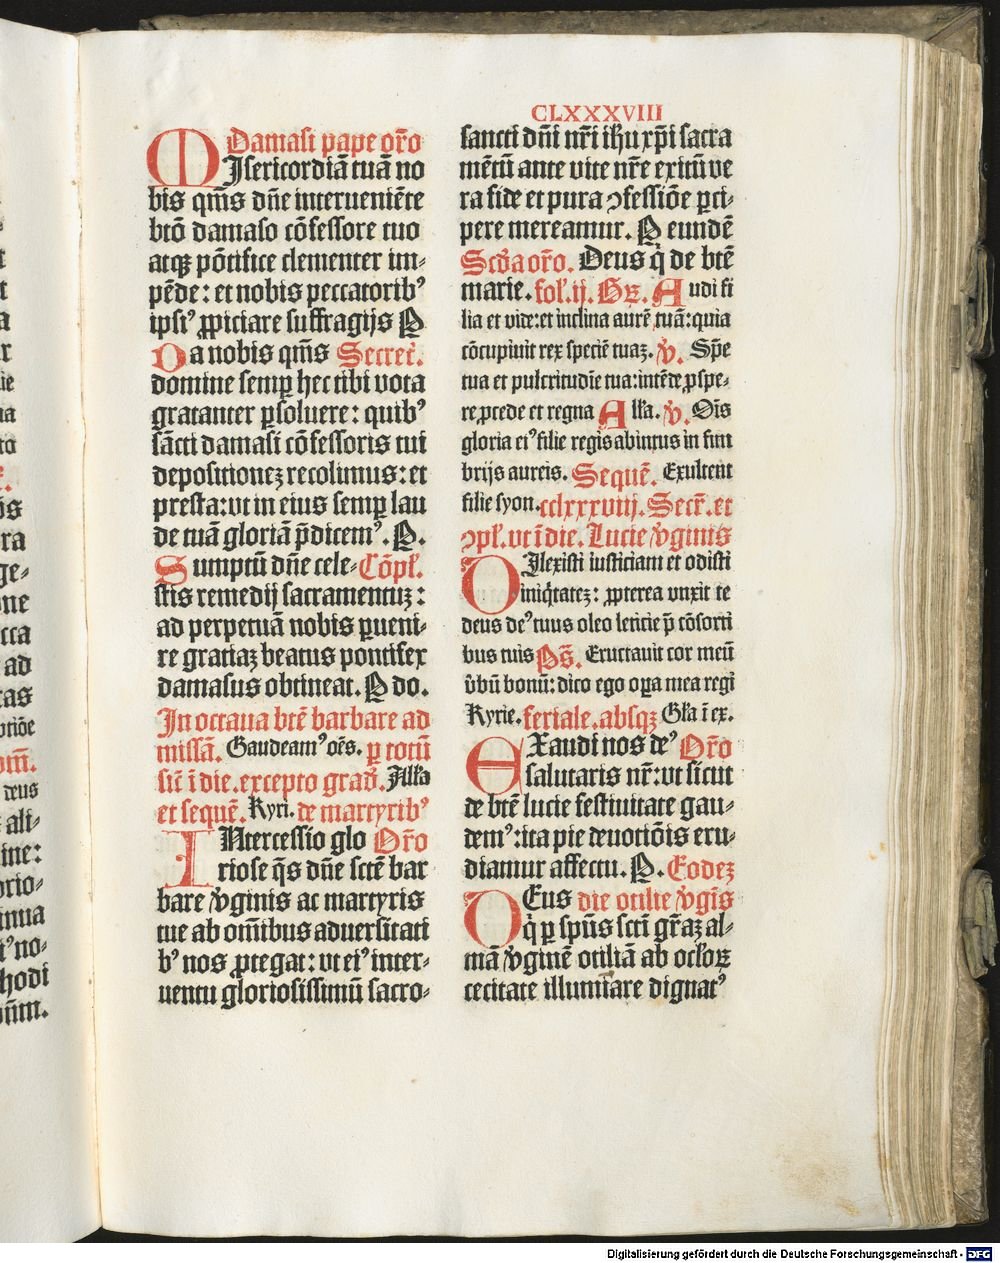 CLXXXVIII
Damasi pape or̄o
MIsericordiā tuā no
bis qm̄s dn̄e interueniēte
btō damaso cōfessore tuo
atqꝫ pōtifice clementer im-
pēde: et nobis peccatoribꝰ
ipsiꝰ ꝓpiciare suffragijs P
Da nobis qm̄s Secret̄.
domine semꝑ hec tibi uota
gratanter ꝑsoluere: quibꝰ
sācti damasi cōfessoris tui
depositionez recolimus: et
presta: vt in eius semꝑ lau
de tuā gloriā p̄dicemꝰ. P.
Sumptū dn̄e cele- Cōpl̄.
stis remedij sacramentuꝫ:
ad perpetuā nobis ꝑueni-
re gratiaꝫ beatus pontifex
damasus obtineat. P do.
In octaua btē barbare ad
missā. Gaudeamꝰ oēs. ꝑ totū
sic̄ ī die. excepto grad̄. Alľa
et sequē. Kyri. de martyribꝰ
INtercessio glo Or̄o
riose q̄s dn̄e sctē bar
bare v̄ginis ac martyris
tue ab om̄ibus aduersitati
bꝰ nos ꝓtegat: vt eiꝰ inter-
uentu gloriosissimū sacro-
sancti dn̄i nr̄i ih̄u xp̄i sacra
mētū ante vite nr̄e exitū ve
ra fide et pura ꝯfessiōe ꝑci-
pere mereamur. P eundē
Scd̄a or̄o. Deus q̄ de btē
marie. fol̄. ij. Gꝝ. Audi fi
lia et vide: et inclina aurē tuā: quia
cōcupiuit rex speciē tuaꝫ. v̄. Spē
tua et pulcritudīe tua: intēde ꝓspe-
re ꝓcede et regna Alľa. v̄. Oīs
gloria eiꝰ filie regis abintus in fim
brijs aureis. Sequē. Exultent
filie syon. cclxxxviij. Secr̄. et
ꝯpl̄. vt ī die. Lucie v̄ginis
DIlexisti iusticiam et odisti
iniq̄tateꝫ: ꝓpterea vnxit te
deus deꝰ tuus oleo leticie p̄ cōsorti
bus tuis Ps̄. Eructauit cor meū
v̄bū bonū: dico ego oꝑa mea regi
Kyrie. feriale. absqꝫ Gľa ī ex.
EXaudi nos deꝰ Or̄o
salutaris nr̄: vt sicut
de btē lucie festiuitate gau-
demꝰ: ita pie deuotiōis eru-
diamur affectu. P. Eodeꝫ
DEus die otilie v̄gīs
q̄ ꝑ spūs scti gr̄aꝫ al-
mā v̄ginē otiliā ab ocľoꝝ
cecitate illumīare dignatꝰ
Digitalisierung gefördert durch die Deutsche Forschungsgemeinschaft - DFG